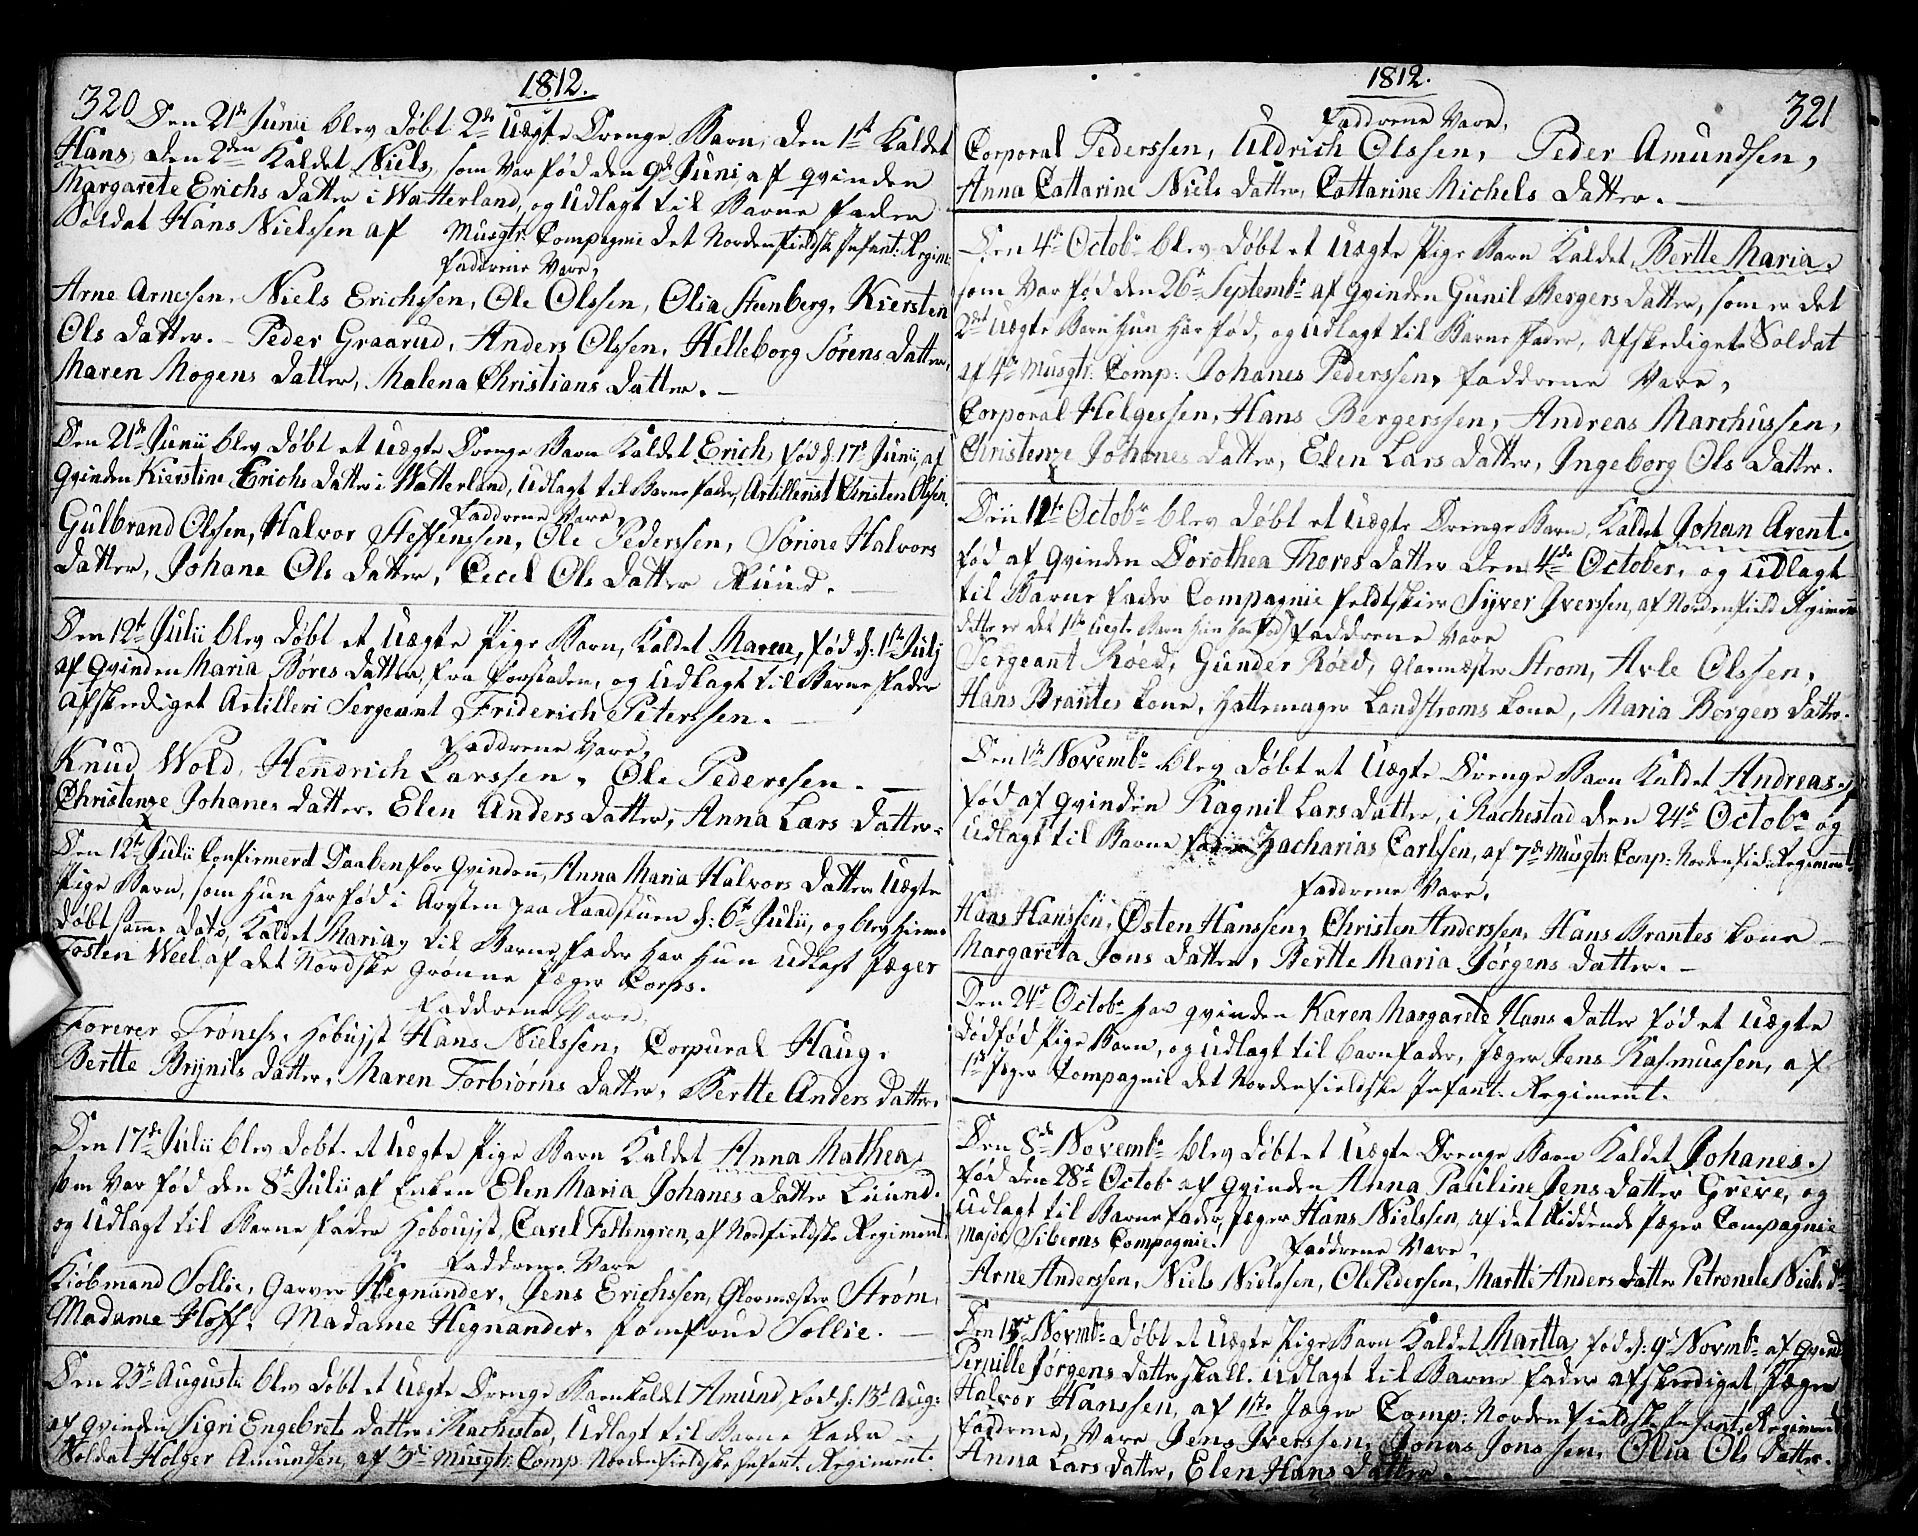 320
1812.
Den 21de Junii blev døbt 2de Uægte Drenge Barn, den 1st kaldet
Hans, den 2den Kaldet Niels, som var fød den 9de Juni, af qvinden
Margarete Erichs Datter i Watterland, og Udlagt til Barne fader
Soldat Hans Nielssen af Musqtr: Compagnie det Nordenfieldske Infant: Regim:
Faddrene Vare,
Arne Arnesen, Niels Erichssen, Ole Olssen, Olia Stenberg, Kiersten
Ols Datter. Peder Graarud, Anders Olssen, Helleborg Sørens Datter,
Maren Mogens Datter, Malena Christians Datter.
Den 21de Junii blev døbt et Uægte Drenge Barn Kaldet Erich, fød d: 17de Junii, af
Qvinden Kierstine Erichs Datter i Watterland, Udlagt til Barne fader, Artillerist Christen Olsen,
Faddrene Vare,
Gulbrand Olsen, Halvor Steffenssen, Ole Pederssen, Sørine Halvors
Datter, Johane Ols Datter, Cecel Ols Datter Ruud.
Den 12te Julii blev døbt et Uægte Pige Barn, Kaldet Maren, fød d: 1ste Julj
af Qvinden Maria Børes Datter, fra Forstaden, og Udlagt til Barne fader
Afskediget Artilleri Sergeant Friderich Peterssen.
Faddrene Vare,
Knud Wold, Hendrich Larssen, Ole Pederssen.
Christenze Johanes Datter, Elen Anders Datter, Anna Lars Datter.
Den 12te Julii Confirmerd Daaben for Qvinden, Anna Maria Halvors Datters Uægte
Pige Barn, som hun har fød i Arresten paa Raadstuen d: 6te Julii, og blev hieme
døbt samme Dato, Kaldet Maria, til Barne fader har hun Udlagt Jæger
Tosten Weel af det Nordske grønne Jæger Corps.
Faddrene Vare,
Forerer Trønes, Hoboujst Hans Nielssen, Corpural Haug.
Bertte Brynils Datter, Maren Torbiørns Datter, Bertte Anders Datter.
Den 17de Julii blev døbt et Uægte Pige Barn Kaldet Anna Mathea,
som Var fød den 8de Julii af Enken Elen Maria Johanes Datter Luund.
og Udlagt til Barne fader Hoboujst, Carel Feltengren, af Nordfieldske Regiment.
Faddrene Vare
Kiøbmand Sollie, Garver Hegnander, Jens Erichssen, Glarmæster Strøm,
Madame Hoff, Madame Hegnander, Jomfrue Sollie.
Den 23de Augusti blev døbt et Uægte Drenge Barn kaldet Amund, fød d: 13de Aug:
af Qvinden Sigri Engebrets Datter i Rachestad, Udlagt til Barne fader
Soldat Holger Amundsen, af 3de Musqtr: Comp: Nordenfieldske Infant: Regiment.
1812.
321
Faddrene Vare,
Corporal Pederssen, Uldrich Olssen, Peder Amundsen,
Anna Cattarine Niels Datter, Cattarine Michels Datter.
Den 4de Octobr blev døbt et Uægte Pige Barn Kaldet Bertte Maria,
som Var fød den 26de Septembr af Qvinden Gunil Bergers Datter, som er det
2det Uægte Barn hun har fød, og Udlagt til Barne fader, afskediget Soldat
af 4de Musqtr: Comp: Johanes Pederssen, Faddrene Vare,
Corporal Helgessen, Hans Bergerssen, Andreas Marchussen,
Christenze Johanes Datter, Elen Lars Datter, Ingeborg Ols Datter.
Den 11te Octobr blev døbt et Uægte Drenge Barn, Kaldet Johan Arent.
fød af Qvinden Dorothea Thores Datter den 4de October, og Udlagt
til Barne fader Compagnie feldtskier Syver Iverssen, af Nordenfield Regiment
dette er det 1ste Uægte Barn hun har fød, Faddrene Vare
Sergeant Røed, Gunder Røed, Glarmæster Strøm, Avle Olssen,
Hans Brantes kone, Hattemager Landstroms kone, Maria Bergers Datter.
Den 1ste Novembr blev døbt et Uægte Drenge Barn Kaldet Andreas,
fød af Qvinden Ragnil Lars Datter, i Rachestad den 24de Octobr og
Udlagt til Barne fader Zacharias Carlsen, af 7de Musqtr: Comp: Nordenfield: Regiment
Faddrene Vare,
Hans Hanssen, Østen Hanssen, Christen Anderssen, Hans Brantes kone
Margareta Jons Datter, Bertte Maria Jørgens Datter.
Den 24de Octobr har qvinden Karen Margareta Hans Datter fød et Uægte
dødfød Pige Barn, og Udlagt til barnfader, Jæger Jens Rasmussen, af
1ste Jæger Compagnie det Nordenfieldske Infant: Regiment.
Den 8de Novembr blev døbt et Uægte Drenge Barn Kaldet Johanes,
fød den 28de Octobr af Qvinden Anna Pauline Jens Datter Greve, og
Udlagt til Barne fader, Jæger Hans Nielssen, af det Riddende Jæger Compagnie
Major Siberns Compagnie. Faddrene Vare,
Arne Anderssen, Niels Nielssen, Ole Pedersen, Martte Anders Datter Petronele Niels Dtr
Den 15de Novembr døbt et Uægte Pige Barn Kaldet Martta, fød d: 9de Novmbr af Qvind
Pernille Jørgens Datter Skall. Udlagt til Barne fader afskediget Jæger
Halvor Hanssen, af 1ste Jæger Comp: Nordenfieldske Infant: Regiment
Faddrene, Vare Jens Iverssen, Jonas Jonssen, Olia Ols Datter.
Anna Lars Datter, Elen Hans Datter.